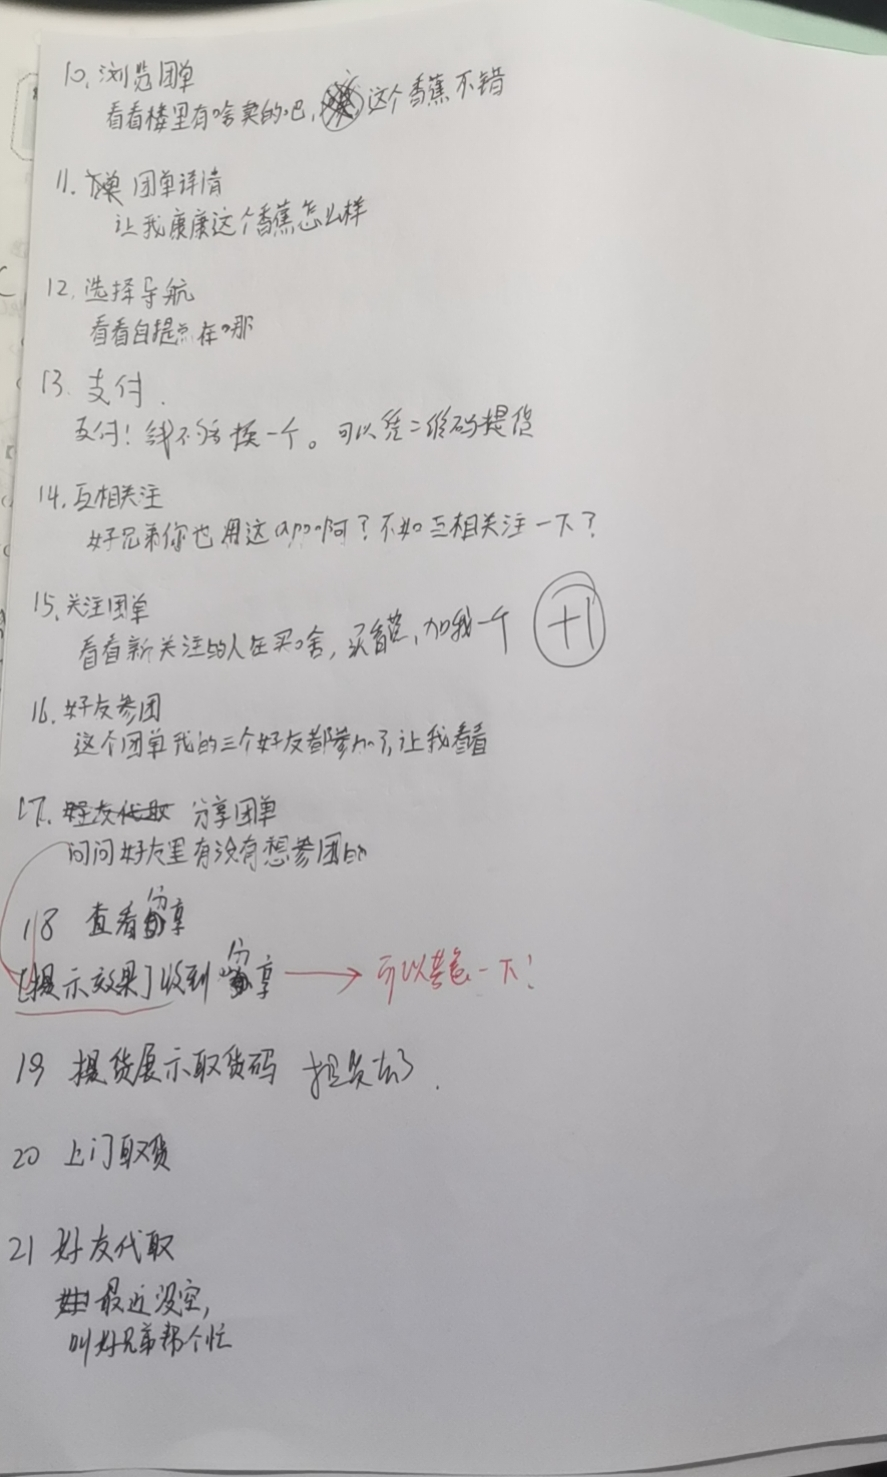 10. 浏览团单
看看楼里有啥卖的吧, 这个香蕉不错
11. 团单详情
让我康康这个香蕉怎么样
12. 选择导航
看看自提点在哪
13. 支付.
支付! 钱不够换一个。可以凭二维码提货
14. 互相关注
好兄弟你也用这app啊? 不如互相关注一下?
15. 关注团单
看看新关注的人在买啥, 买香蕉, 加我一个 +1
16. 好友参团
这个团单我的三个好友都参加了, 让我看看
17. 好友代取 分享团单
问问好友里有没有想参团的
18 查看分享
[提示效果] 收到分享 → 可以黄色一下!
19 提货展示取货码 提货去了.
20 上门取货
21 好友代取
最近没空,
叫好兄弟帮个忙